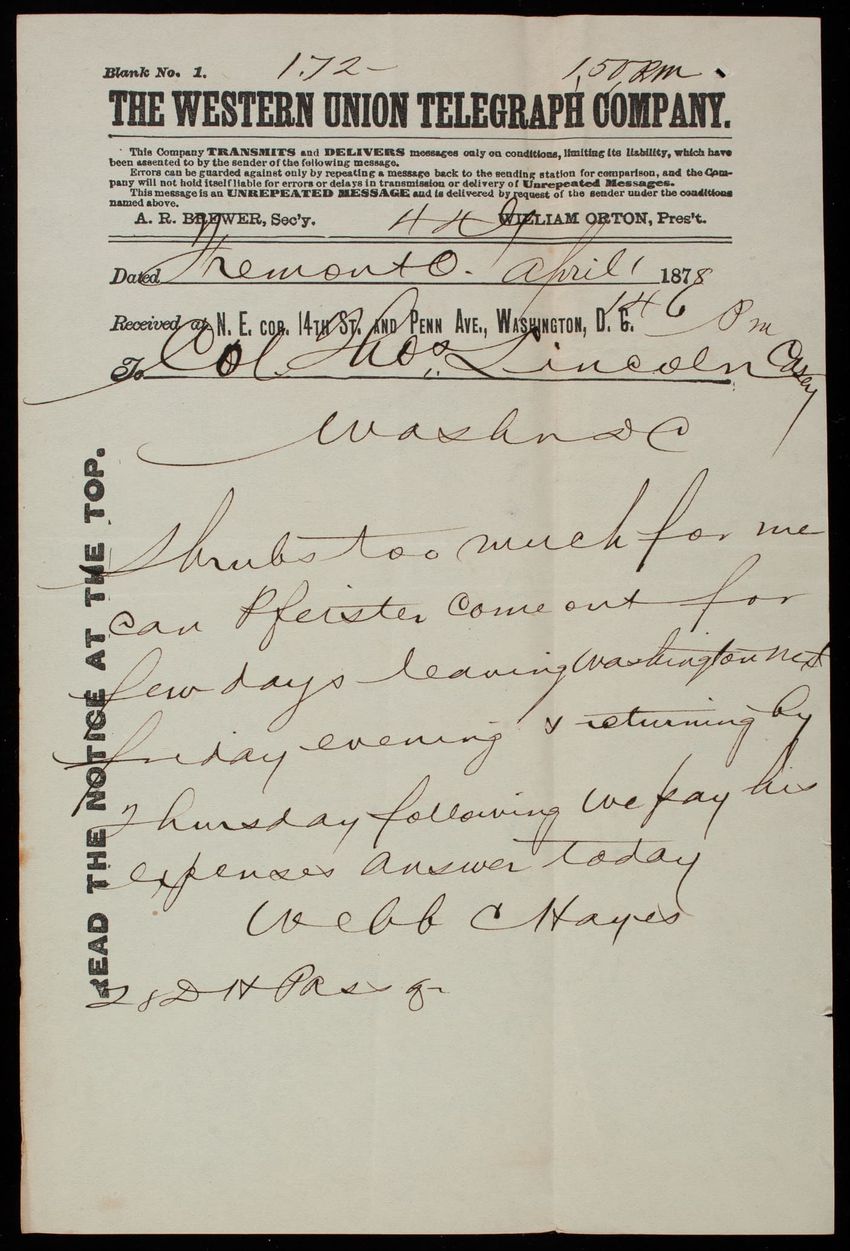 Blank No. 1. 172 - 1,50 Pm
THE WESTERN UNION TELEGRAPH COMPANY.
This Company TRANSMITS and DELIVERS messages only on conditions, limiting its liability, which have
been assented to by the sender of the following message.
Errors can be guarded against only by repeating a message back to the sending station for comparison, and the Com-
pany will not hold itself liable for errors or delays in transmission or delivery of Unrepeated Messages.
This message is an UNREPEATED MESSAGE and is delivered by request of the sender under the conditions
named above.
A. R. BREWER, Sec'y. WILLIAM ORTON, Pres't.
Dated Fremont O. April 1 1878
Received at N. E. COR. 14TH ST. AND PENN AVE., WASHINGTON, D. C. 146 Pm
To Col. Thos. Lincoln Casey
Washn DC
Shrubs too much for me
can Pfeister come out for
few days leaving Washington next
friday evening & returning by
Thursday following We pay his
expenses answer today
Webb C Hayes
28 DH
READ THE NOTICE AT THE TOP.